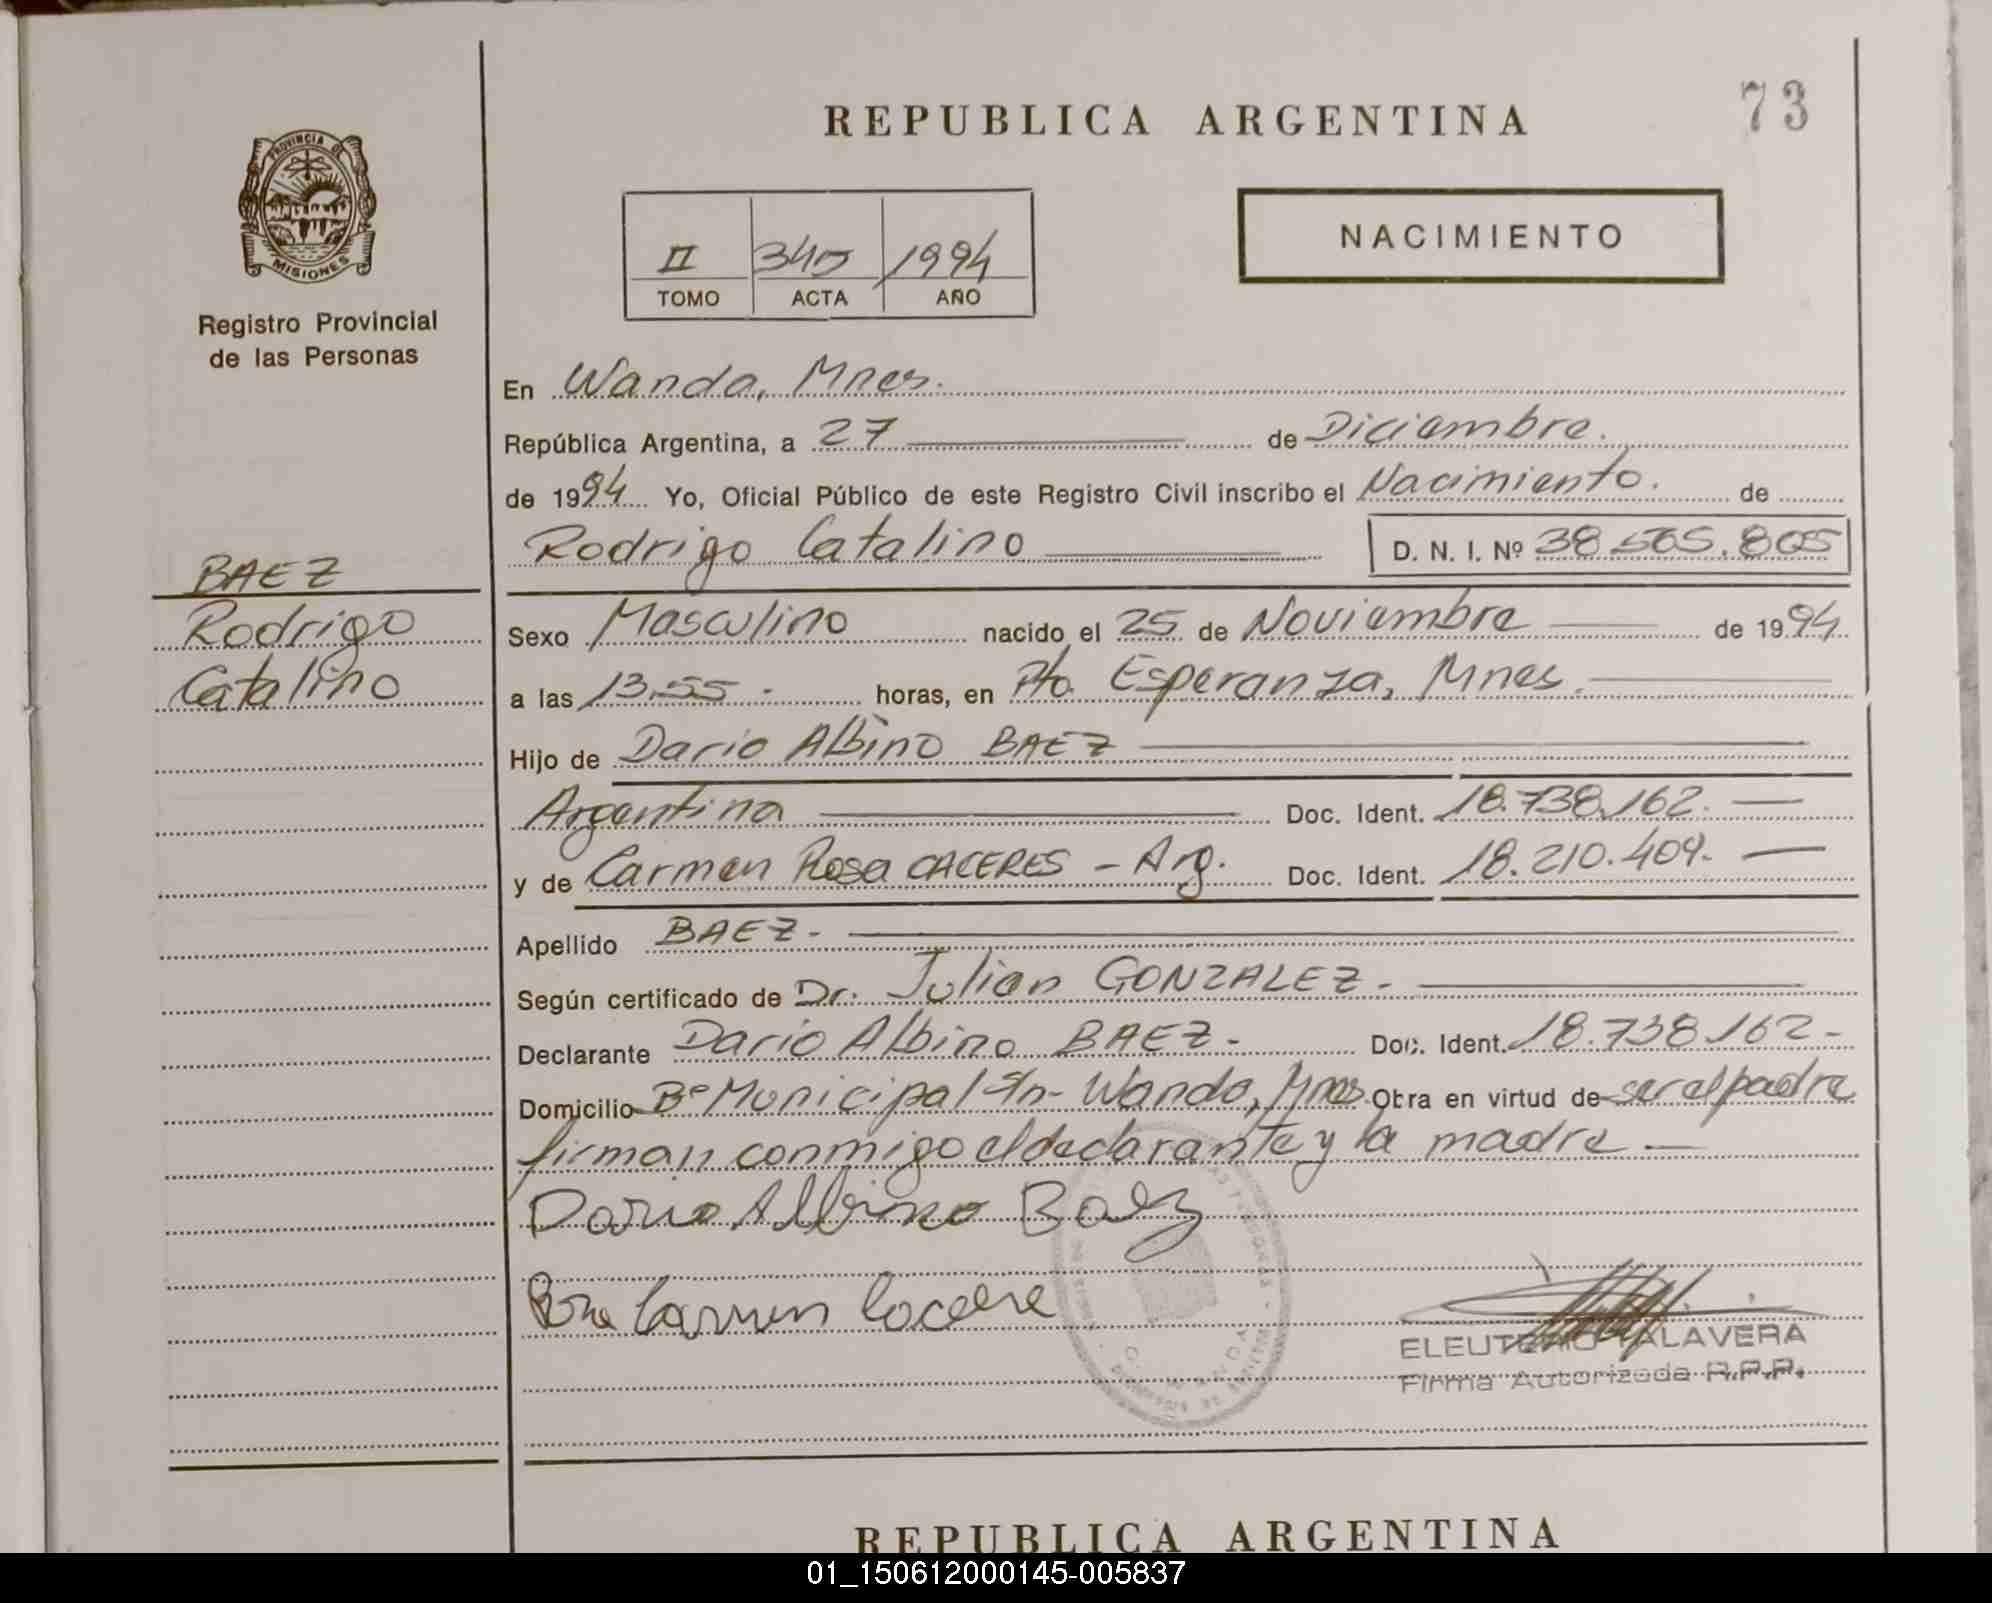 REPUBLICA ARGENTINA
73
PROVINCIA DE
MISIONES
Registro Provincial
de las Personas
II 345 1994
TOMO ACTA AÑO
NACIMIENTO
En Wanda, Mnes.
República Argentina, a 27 de Diciembre.
de 1994 Yo, Oficial Público de este Registro Civil inscribo el Nacimiento. de
Rodrigo Catalino D. N. I. Nº 38.565.805
BAEZ
Rodrigo
Catalino
Sexo Masculino nacido el 25 de Noviembre de 1994
a las 13,55. horas, en Pto. Esperanza, Mnes.
Hijo de Dario Albino BAEZ
Argentina Doc. Ident. 18.738.162.
y de Carmen Rosa CACERES - Arg. Doc. Ident. 18.210.409.
Apellido BAEZ.
Según certificado de Dr. Julian GONZALEZ.
Declarante Dario Albino BAEZ. Doc. Ident. 18.738.162-
Domicilio Bº Municipal s/n- Wanda, Mnes Obra en virtud de ser el padre
firman conmigo el declarante y la madre
Dario Albino Baez
Carmen
ELEUTERIO TALAVERA
Firma Autorizada R.P.P.
REPUBLICA ARGENTINA
01_150612000145-005837